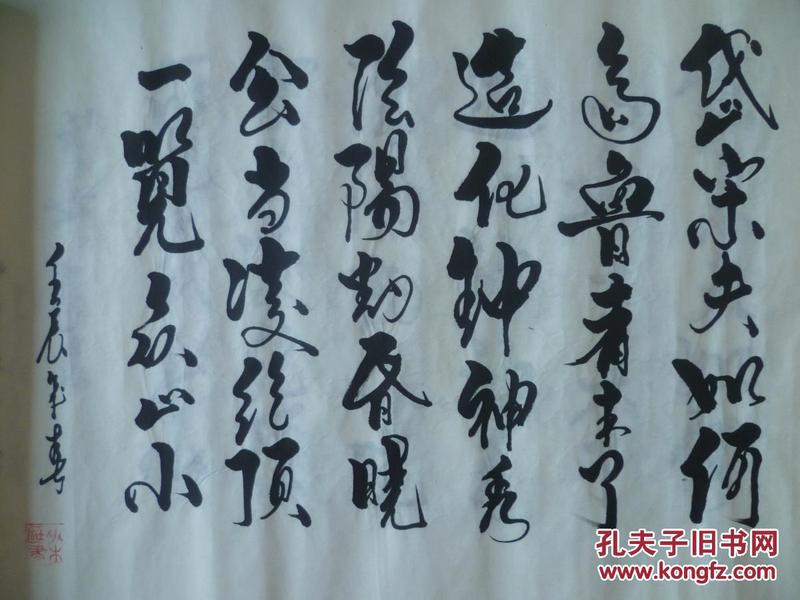 岱宗夫如何
齐鲁青未了
造化钟神秀
陰陽割昏曉
会当凌绝顶
一覽众山小
壬辰年春
孔夫子旧书网
www.kongfz.com